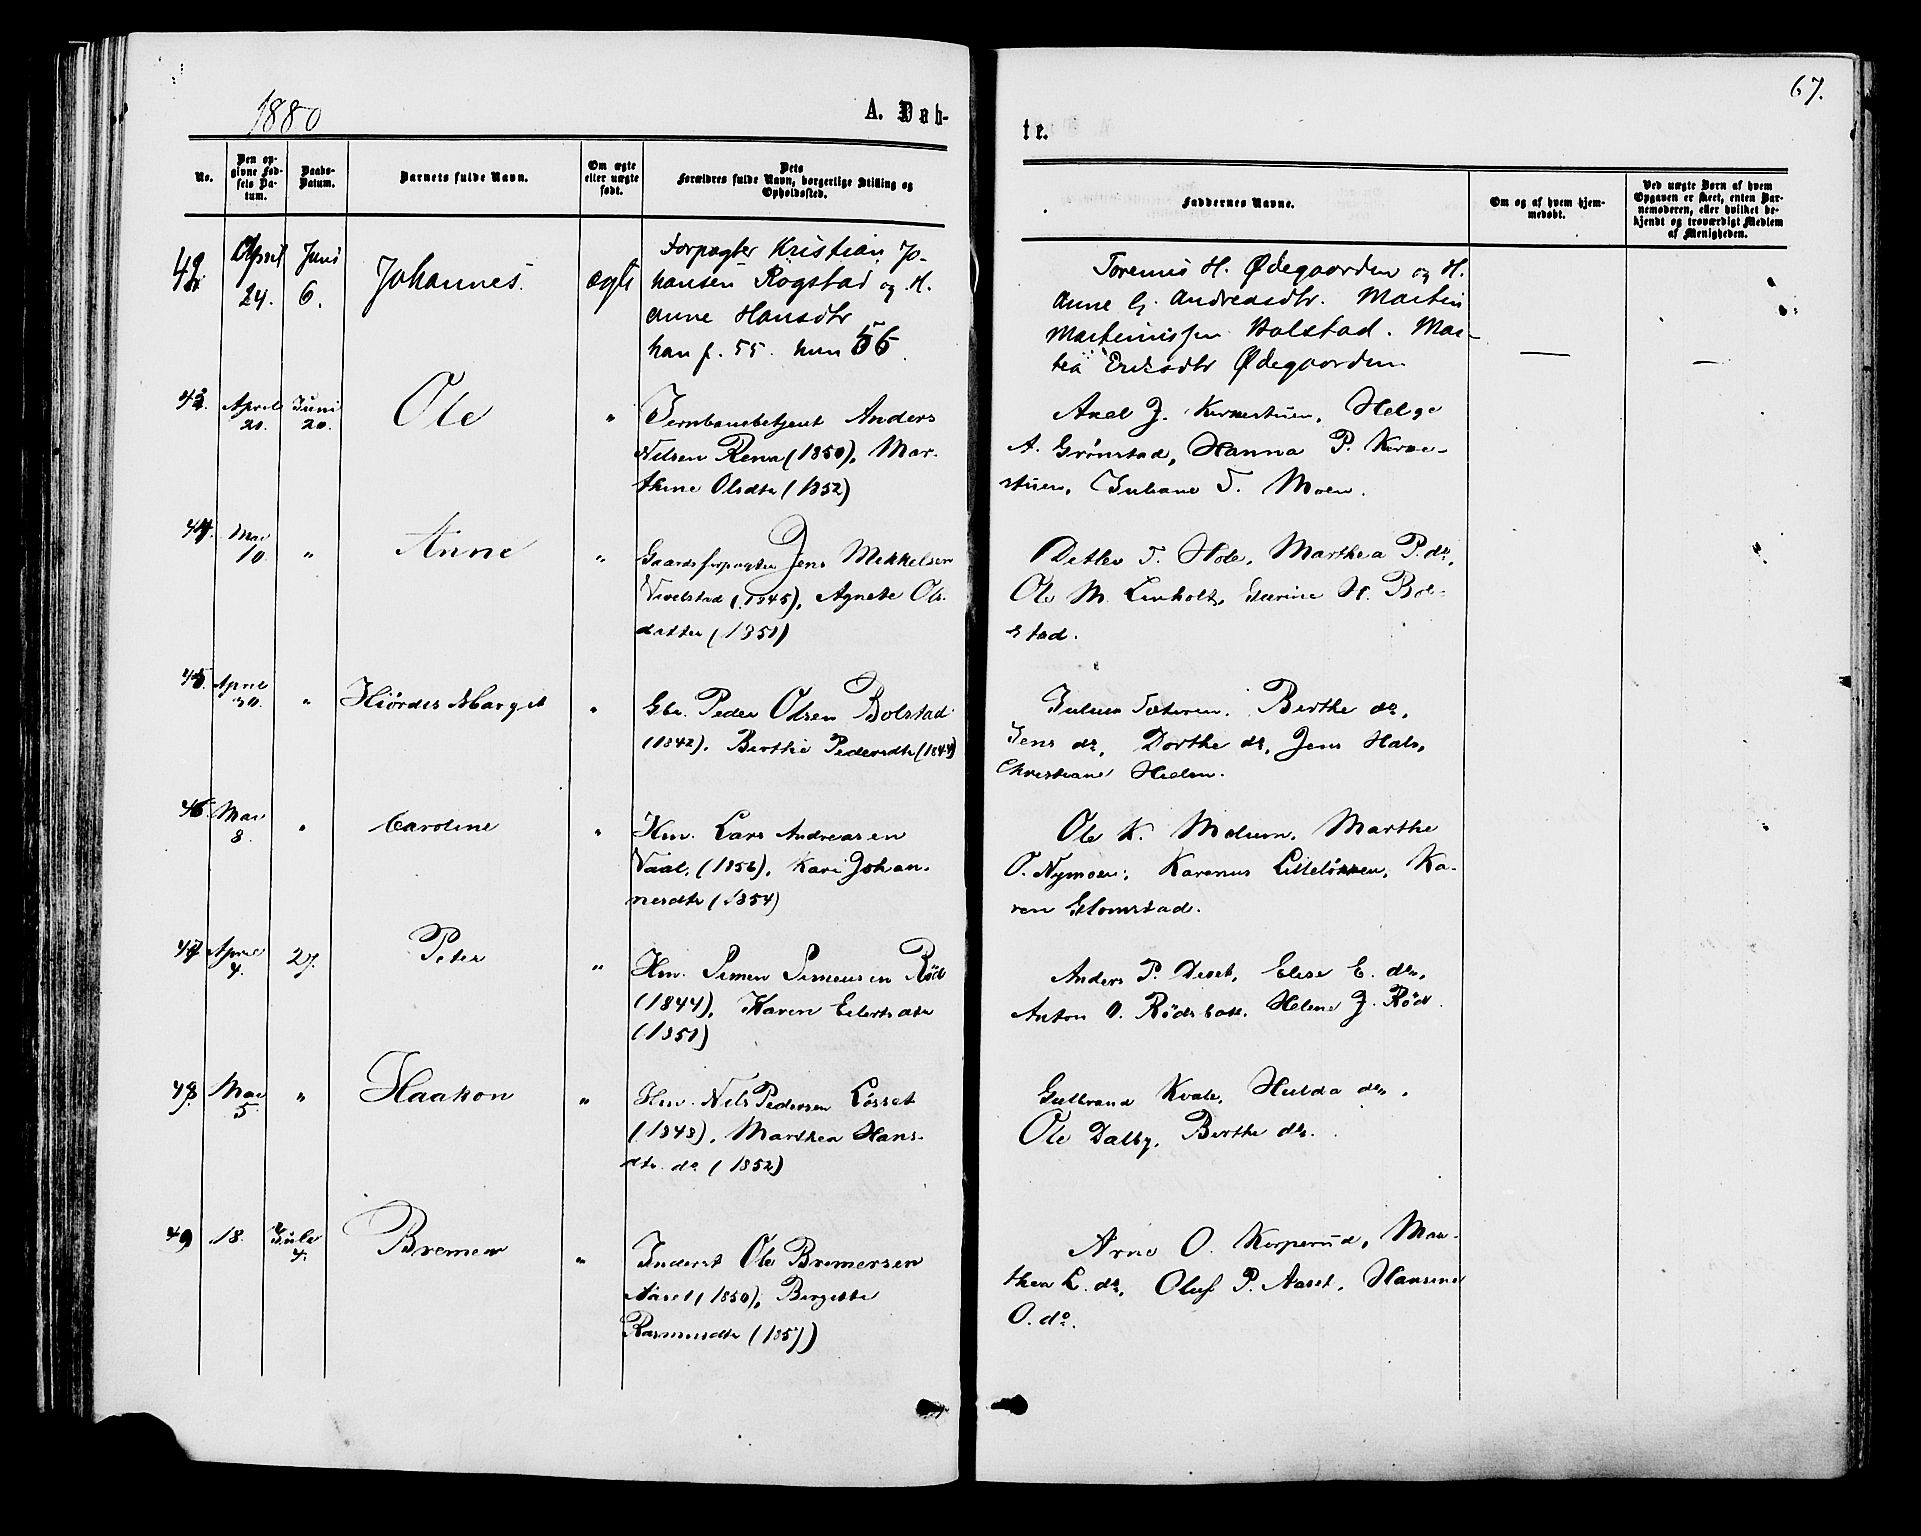 1880
A. Døb-
te.
67.
No.
Den op-
givne Fød-
sels Da-
tum.
Daabs-
Datum.
Barnets fulde Navn.
Om ægte
eller uægte
født.
Dets
Forældres fulde Navn, borgerlige Stilling og
Opholdssted.
Faddernes Navne.
Om og af hvem hjem-
medøbt.
Ved uægte Børn af hvem
Opgaven er skeet, enten Bar-
nemoderen, eller hvilket be-
kjendt og troværdigt Medlem
af Menigheden.
42. April 24. Juni 6. Johannes. ægte
Forpagter Kristian Jo-
hansen Rogstad og H.
Anne Hansdtr
han f. 55. hun 56.
H. Ødegaarden og H.
Anne G. Andreasdtr. Martin
Martinussen Bolstad. Mar-
tea Eriksdtr Ødegaarden.
43. April 20. Juni 20. Ole "
Jernbanebetjent Anders
Nilsen Rena (1850), Mar-
thine Olsdtr (1852)
Axel J. Kirkestuen, Helge
A. Grønstad, Hanna P. Kirke-
stuen, Juliane T. Moen.
44. Mai 10. " Anne "
Gaardsforpagter Jens Mikkelsen
(1845), Agnete Ols-
datter (1851)
Detlev T. Hole, Marthea P. do,
Ole M. Linholt, H. Bol-
stad.
45. April 30. " Hiørdis Margit "
Gbr. Peder Olsen Bolstad
(1842), Berthe Pedersdtr (1844)
Julius Sæteren, Berthe do,
Jens do, Dorthe do, Jens Hals,
Christiane
46. Mai 8. " Caroline "
Hm. Lars Andreasen
Vaal, (1856), Kari Johan-
nesdtr (1854)
Ole K. Melum, Marthe
O. Nymoen, Karenus Lilleløkken, Ka-
ren Glomstad.
47. April 4. 27. Peter "
Hm. Simen Simensen Rød
(1844), Karen Eilertsdtr
(1851)
Anders P. Deset, Elise E. do,
Anton O. Rødsbak, Helene J. Rød.
48. Mai 5. " Haakon "
Hm. Nils Pedersen Løsset
(1848), Marthea Hans-
dtr. do (1852)
Gulbrand Kvale, Hulda do,
Ole Dalby, Berthe do.
49 18. Juli 4. Bremer "
Inderst Ole Bremersen
Aaset (1850), Birgitte
Rasmusdtr (1857)
Arne O. Korperud, Mar-
thea L. do, Oluf P. Aaset, Hansine
O. do.